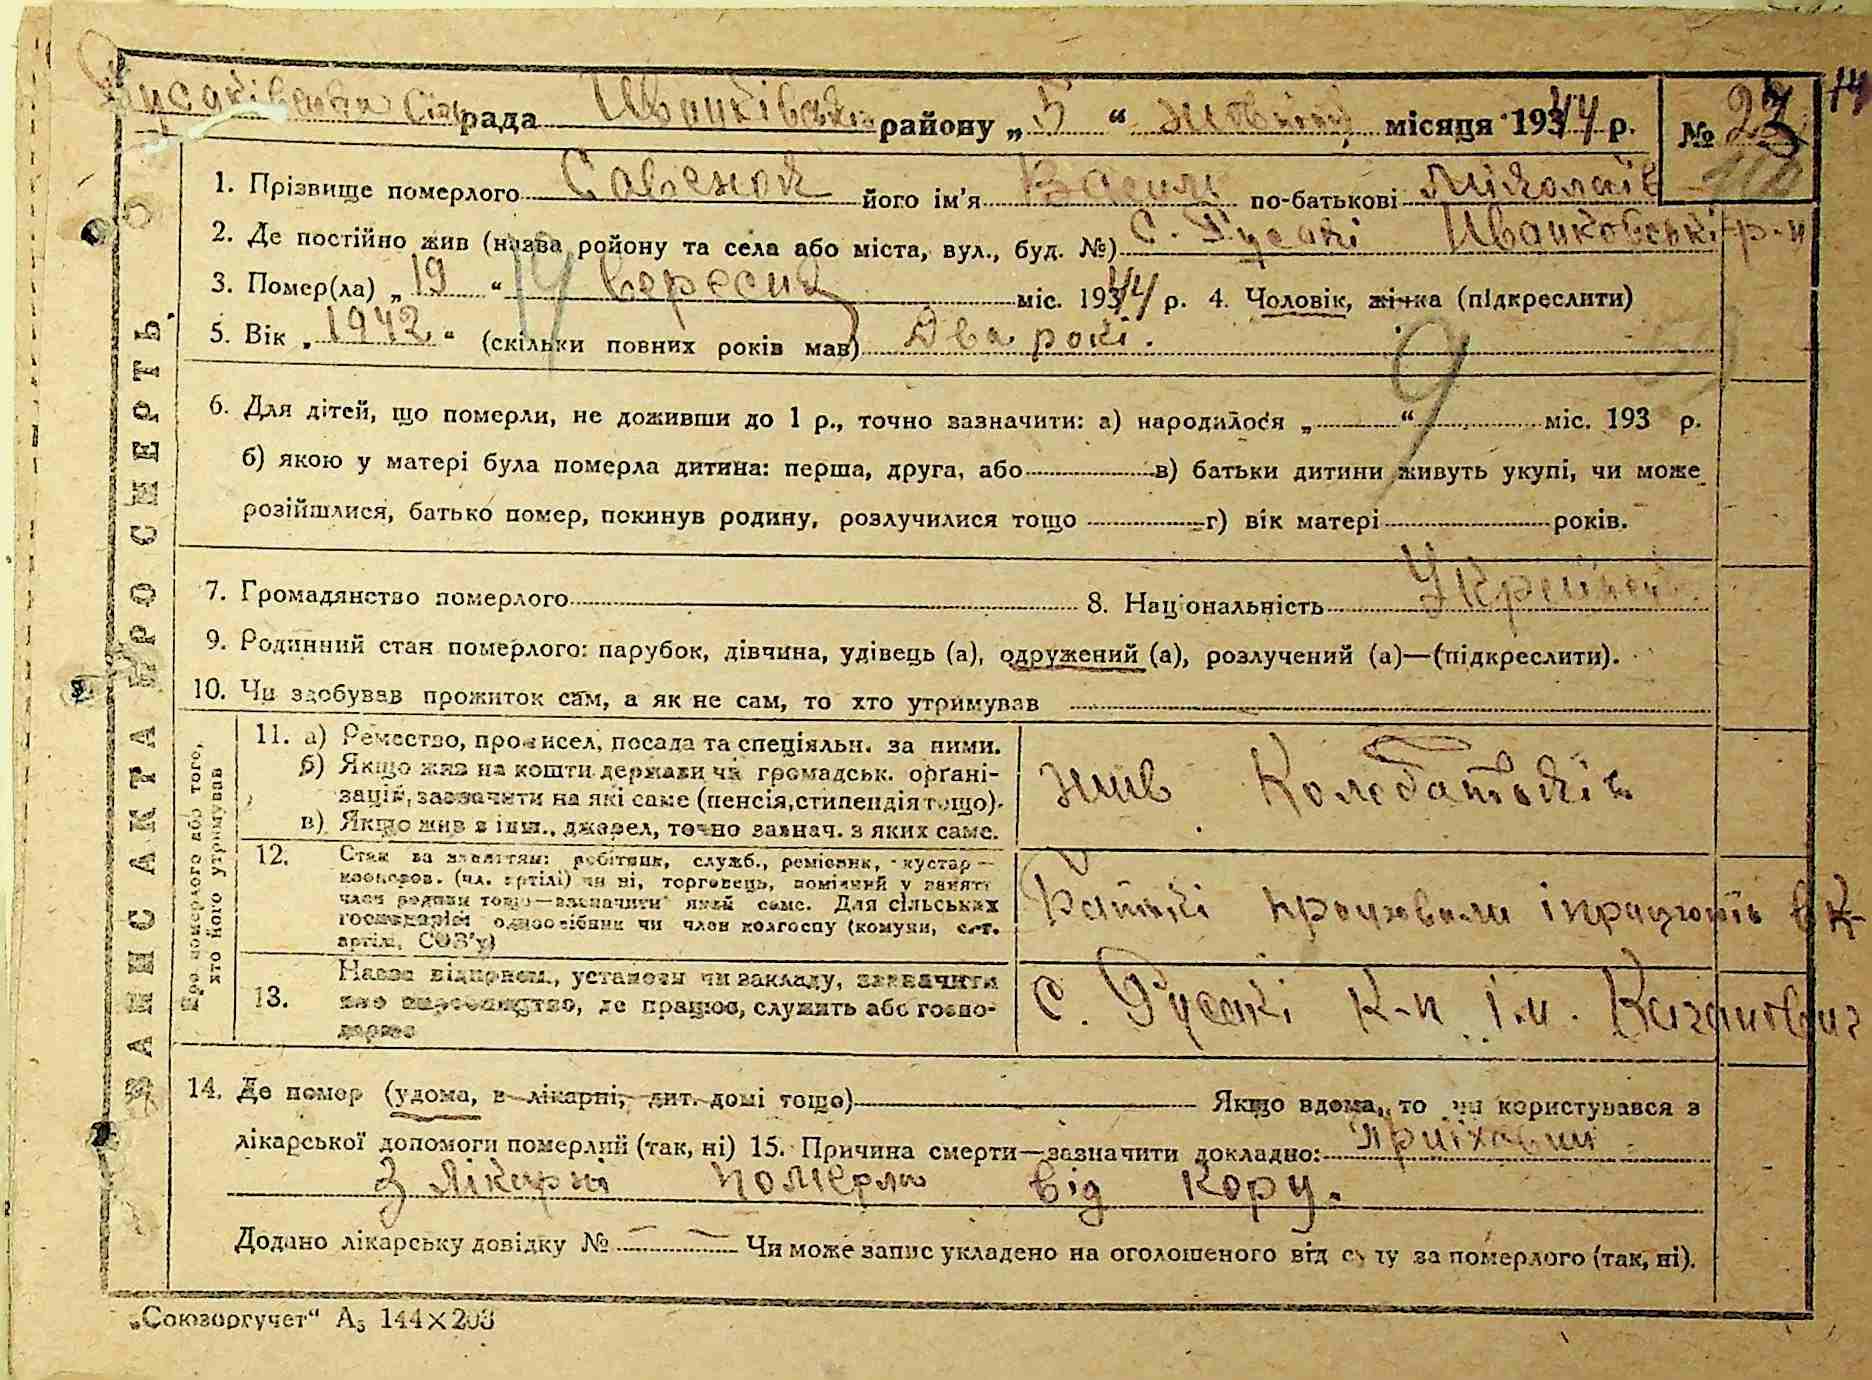 Русаківська Сільрада Иванківськ району „5“ жовтня місяця 1944 р. № 23 14
ЗАПИС АКТА ПРО СМЕРТЬ
1. Прізвище померлого Савенок його ім'я Василь по-батькові Міколаїв
2. Де постійно жив (назва району та села або міста, вул., буд. №) С. Русакі Иванковські р-н
3. Помер(ла) „19“ вересня міс. 1944 р. 4. Чоловік, жінка (підкреслити)
19
5. Вік „1942“ (скільки повних років мав) Два рокі.
9
6. Для дітей, що померли, не доживши до 1 р., точно зазначити: а) народилося „ “ міс. 193 р.
б) якою у матері була померла дитина: перша, друга, або в) батьки дитини живуть укупі, чи може
розійшлися, батько помер, покинув родину, розлучилися тощо г) вік матері років.
7. Громадянство померлого 8. Національність Украінец
9. Родинний стан померлого: парубок, дівчина, удівець (а), одружений (а), розлучений (а)—(підкреслити).
10. Чи здобував прожиток сам, а як не сам, то хто утримував
Про померлого або того,
хто його утримував
11. а) Ремество, промисел, посада та спеціяльн. за ними.
б) Якщо жив на кошти держави чи громадськ. органі-
зацій, зазначити на які саме (пенсія, стипендія тощо).
в) Якщо жив з інш., джерел, точно зазнач. з яких саме.
жив Коло батьків
12. Стан за заняттям: робітник, служб., ремісник, кустар—
кооперов. (чл. артілі) чи ні, торговець, помічний у занятт
член родини тощо—зазначити який саме. Для сільських
господарів: одноосібник чи член колгоспу (комуни, с.-г.
артілі, СОЗ'у)
Батькі працювали і працюють в к-
13. Назва підприєм., установи чи закладу, зазначити
їхнє виробництво, де працює, служить або госпо-
дарює
С. Русакі к-п і.м. Кагановіч
14. Де помер (удома, в лікарні, дит. домі тощо) Якщо вдома, то чи користувався з
лікарської допомоги померлий (так, ні) 15. Причина смерти—зазначити докладно: приіхавши
З лікарні померла від кору.
Додано лікарську довідку № Чи може запис укладено на оголошеного від суду за померлого (так, ні).
„Союзоргучет“ А5 144×203